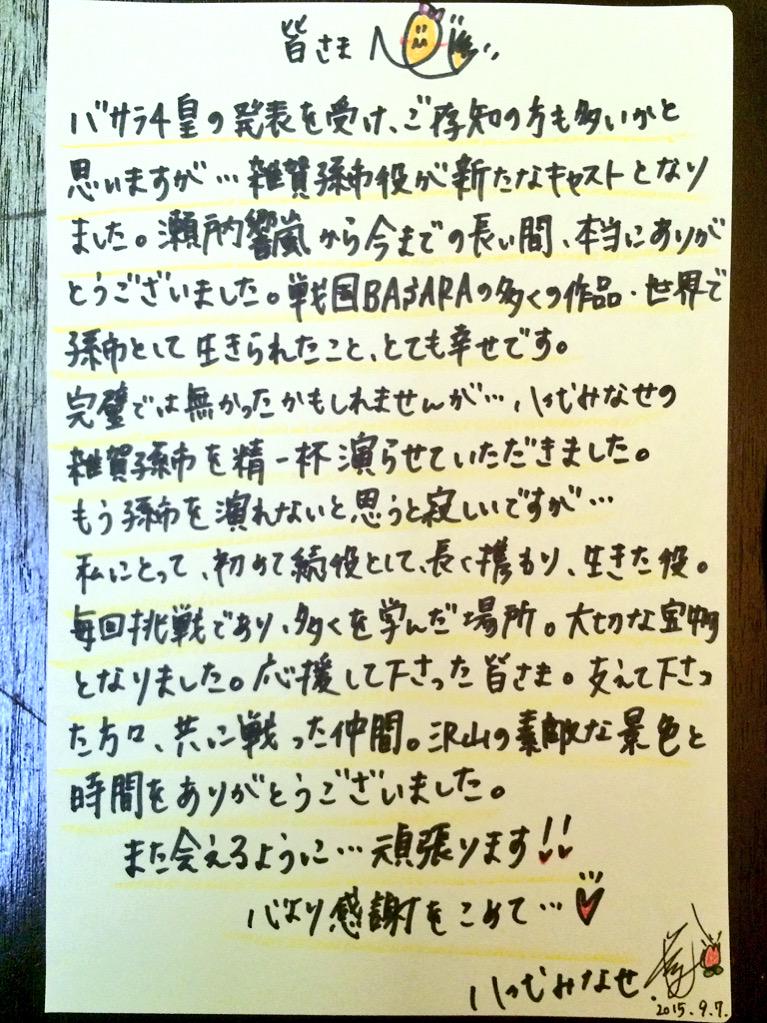 皆さまへ
バサラ4皇の発表を受け、ご存知の方も多いかと
思いますが…雑賀孫市役が新たなキャストとなり
ました。瀬戸内響嵐から今までの長い間、本当にありが
とうございました。戦国BASARAの多くの作品・世界で
孫市として生きられたこと、とても幸せです。
完璧では無かったかもしれませんが…、ハづみなせの
雑賀孫市を精一杯演らせていただきました。
もう孫市を演れないと思うと寂しいですが…
私にとって、初めて続役として、長く携わり、生きた役。
毎回挑戦であり、多くを学んだ場所。大切な宝物
となりました。応援して下さった皆さま。支えて下さっ
た方々、共に戦った仲間。沢山の素敵な景色と
時間をありがとうございました。
また会えるように…頑張ります!!
心より感謝をこめて…
ハづみなせ.
2015.9.7.